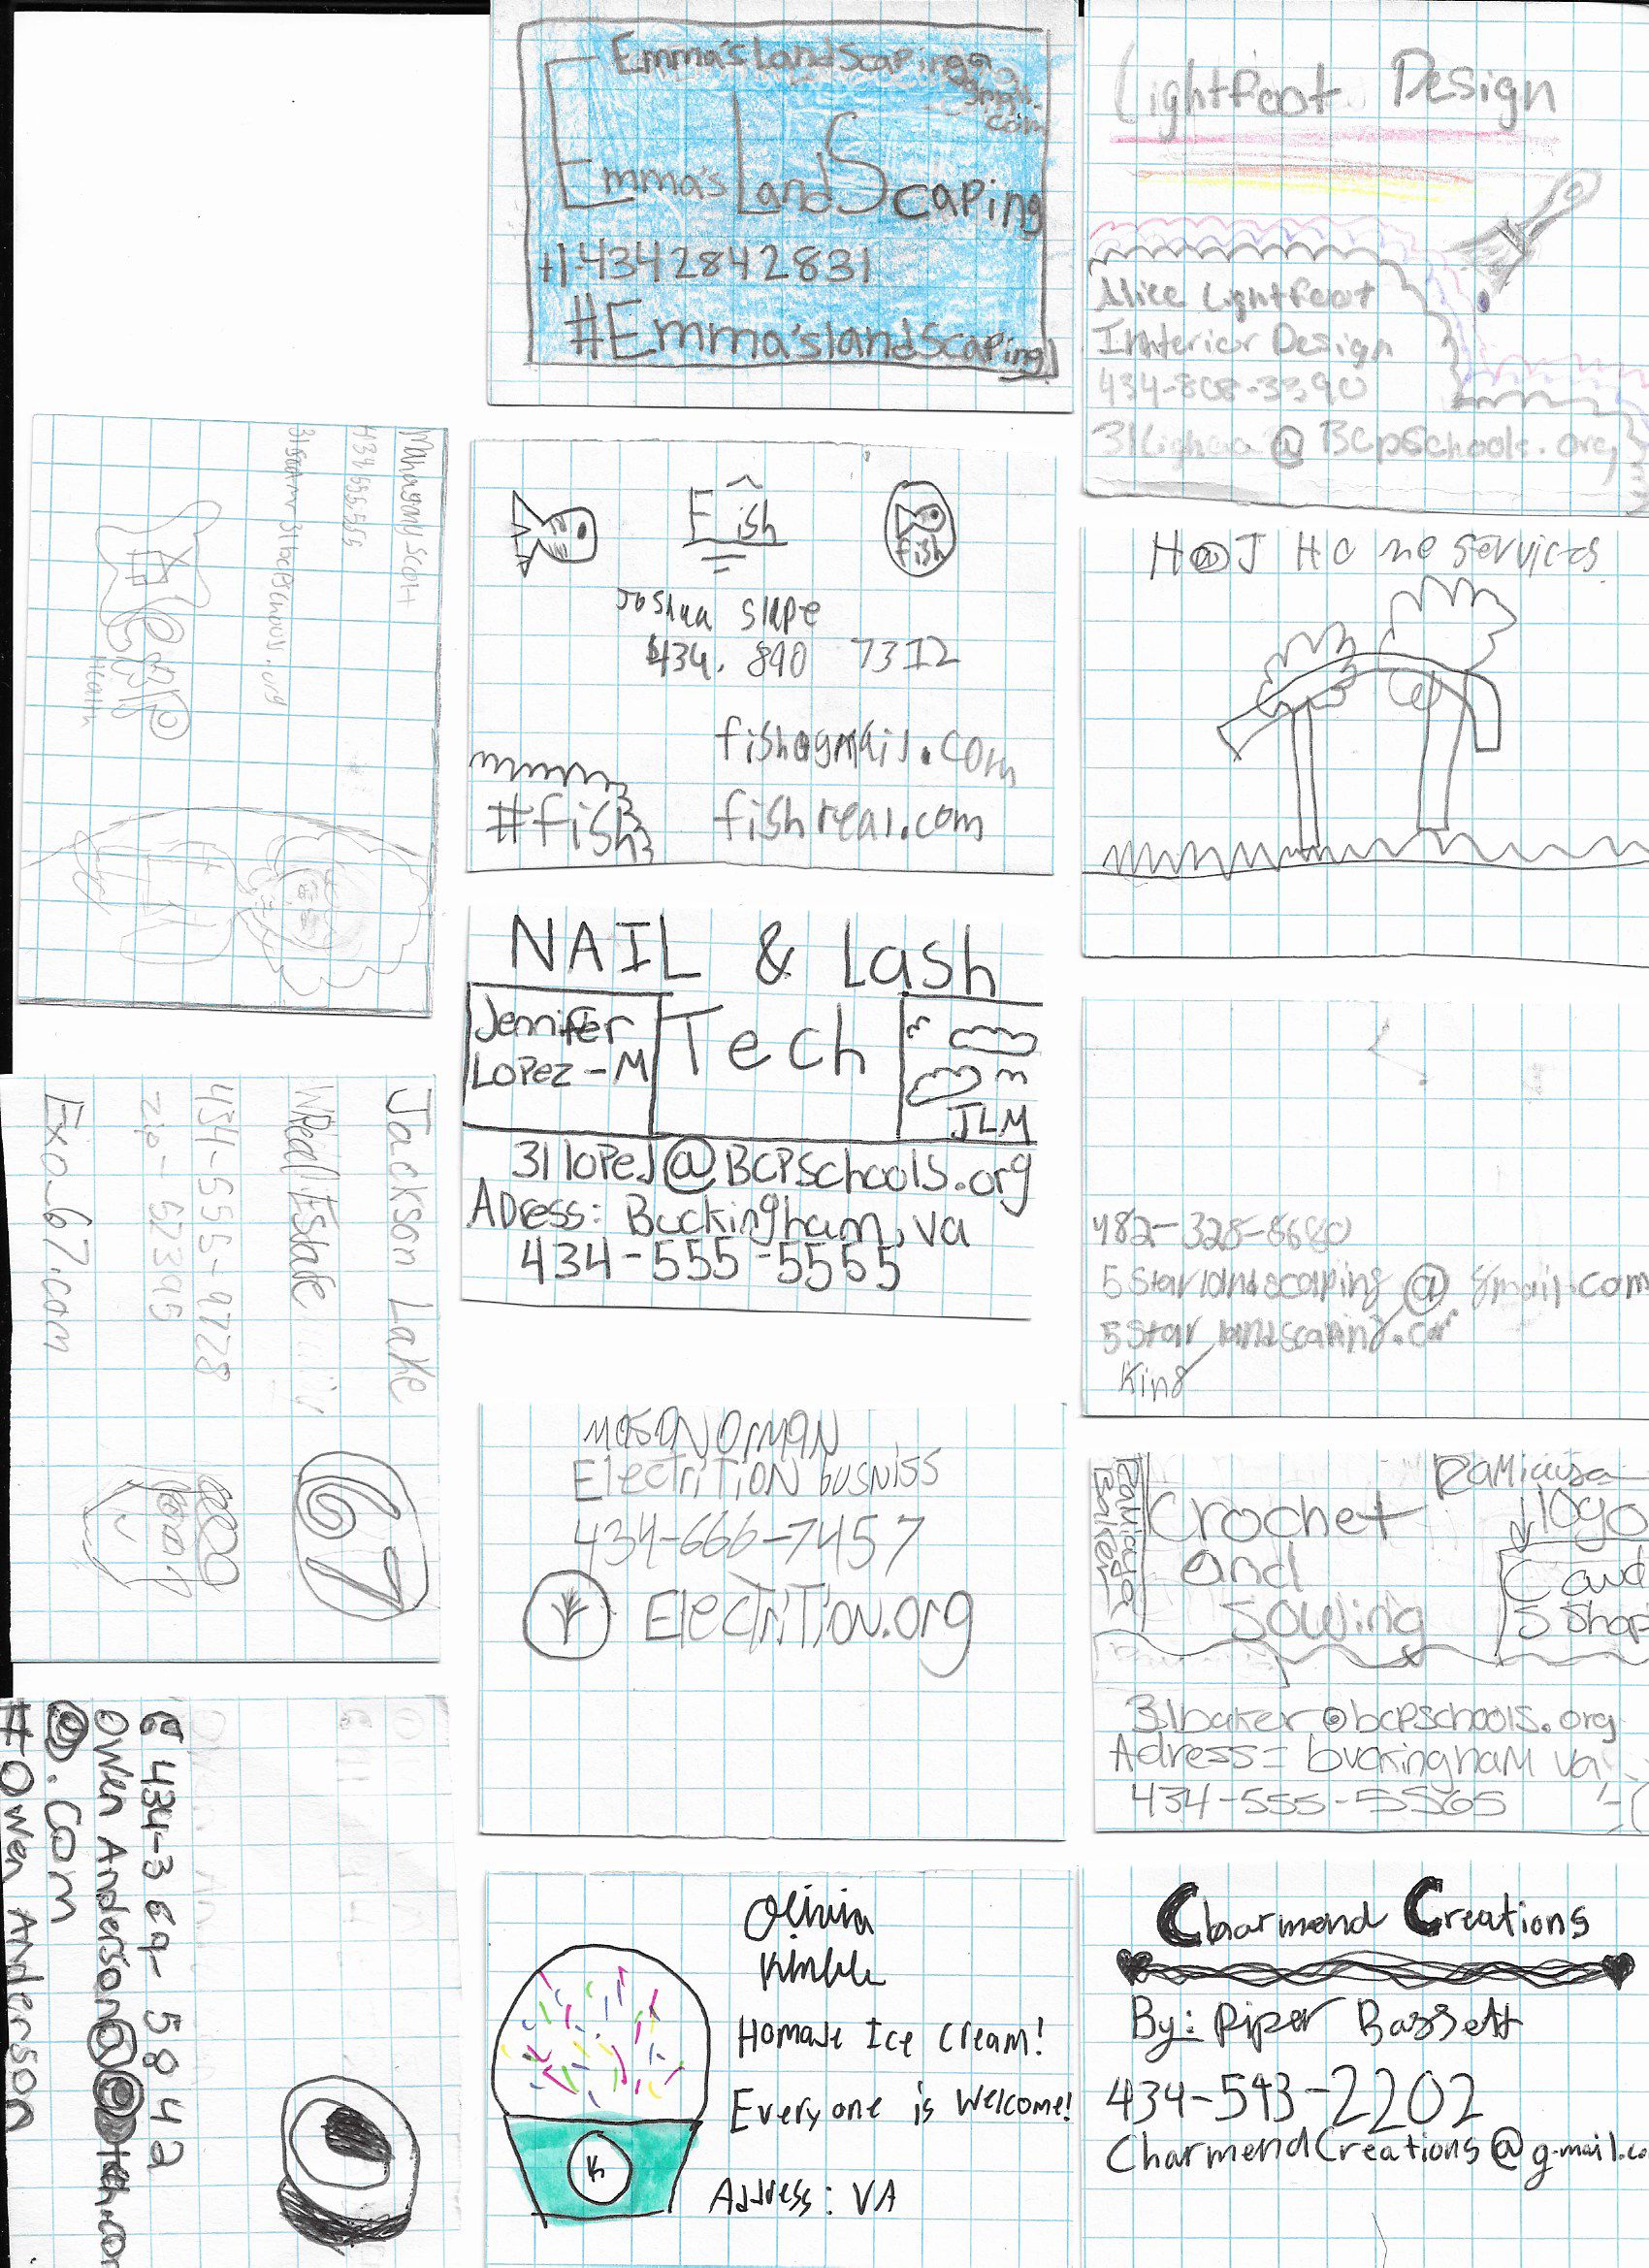 Emma'sLandScaping@
gmail.
com
Emma's LandScaping
+1-4342842831
#Emma'slandScaping
Lightfoot Design
Alice Lightfoot
Innterior Design
434-808-3390
@BCpSchools.org
Mahagany Scott
Health
Fish
fish
Joshua Slape
434. 890 7312
fish@gmail.com
#fish
fishreal.com
H@J Home services
NAIL & Lash
Jennifer
Lopez-M
Tech
JLM
31lopeJ@BCPSchools.org
ADress: Buckingham, va
434-555-5555
Jackson Lake
Real Estate
434-555-9728
zip- 52395
Exo_67.com
67
482-328-8680
5Starlandscaping@gmail.com
5Star landscaping.com
King
MasoN OrmaN
ElectriTioN busniss
434-666-7457
ElectriTion.org
Baker
Crochet
and
Sowing
logo
C and
S Shop
31baker@bcpschools.org
Adress= buckingham va
434-555-5565
434-369-5842
Owen Anderson
.com
#Owen Anderson
Olivia
Kimble
Homade Ice Cream!
Everyone is Welcome!
K
Address: VA
Charmend Creations
By: Piper Bassett
434-543-2202
CharmendCreations@g-mail.co